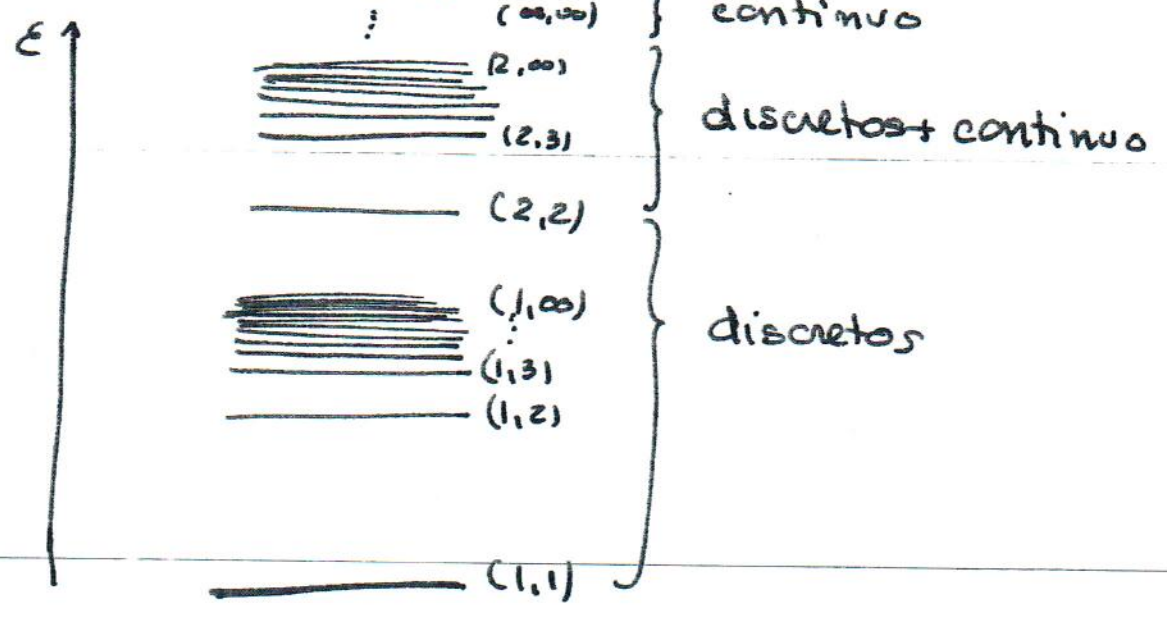 (∞,∞) } continuo
ε
(2,∞)
discretos + continuo
(2,3)
(2,2)
(1,∞)
discretos
(1,3)
(1,2)
(1,1)